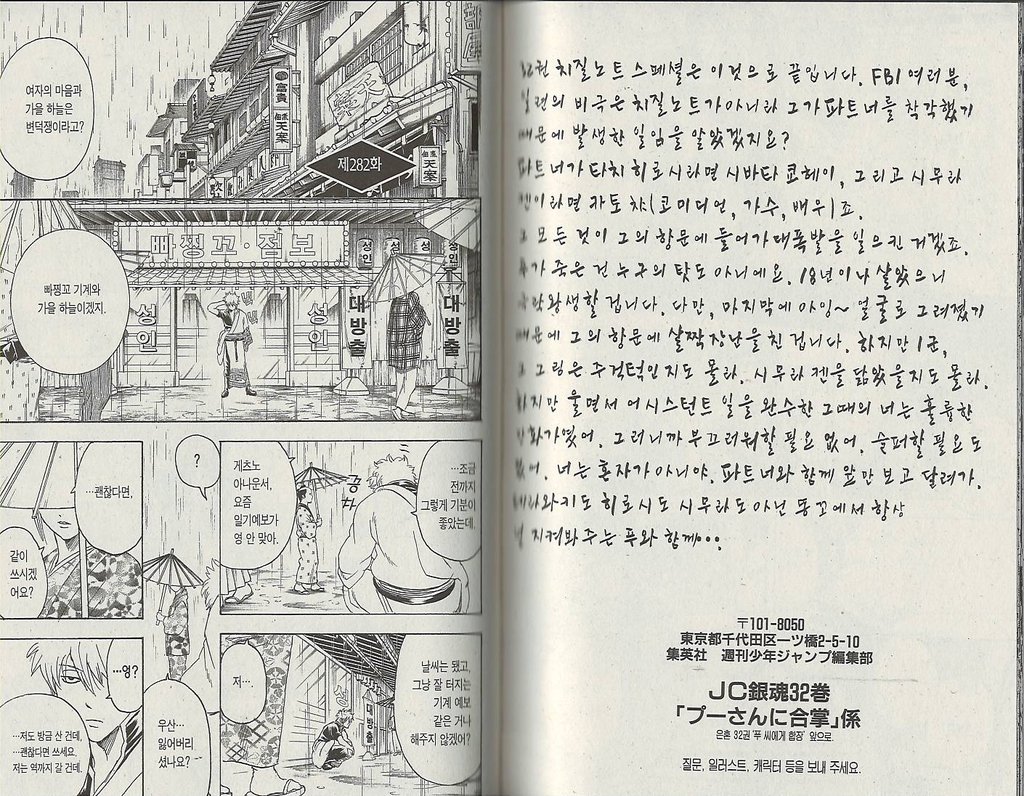 32권 치질노트 스페셜은 이것으로 끝입니다. FBI 여러분,
비극은 치질노트가 아니라 그가 파트너를 착각했기
때문에 발생한 일임을 알았겠지요?
파트너가 타치 히로시라면 시바타 코헤이, 그리고 시무라
켄이라면 카토 챠(코미디언, 가수, 배우)죠.
모든 것이 그의 항문에 들어가 대폭발을 일으킨 거겠죠.
죽은 건 누구의 탓도 아니에요. 18년이나 살았으니
할 겁니다. 다만, 마지막에 아잉~ 얼굴로 그려졌기
때문에 그의 항문에 살짝 장난을 친 겁니다. 하지만 I 군,
그 그림은 주걱턱인지도 몰라. 시무라 켄을 닮았을지도 몰라.
하지만 울면서 어시스턴트 일을 완수한 그때의 너는 훌륭한
만화가였어. 그러니까 부끄러워할 필요 없어. 슬퍼할 필요도
없어. 너는 혼자가 아니야. 파트너와 함께 앞만 보고 달려가.
히로시도 시무라도 아닌 똥꼬에서 항상
지켜봐 주는 푸와 함께…
〒101-8050
東京都千代田区一ツ橋2-5-10
集英社 週刊少年ジャンプ編集部
JC銀魂32巻
「プーさんに合掌」係
은혼 32권 '푸 씨에게 합장' 앞으로.
질문, 일러스트, 캐릭터 등을 보내 주세요.
富貴
天案
天案
제282화
여자의 마음과
가을 하늘은
변덕쟁이라고?
빠찡꼬·점보
성인
성인
성인
대방출
대방출
빠찡꼬 기계와
가을 하늘이겠지.
…조금
전까지
그렇게 기분이
좋았는데.
게츠노
아나운서,
요즘
일기예보가
영 안 맞아.
?
…괜찮다면,
같이
쓰시겠
어요?
날씨는 됐고,
그냥 잘 터지는
기계 예보
같은 거나
해주지 않겠어?
대방출
저…
우산…
잃어버리
셨나요?
…엉?
…저도 방금 산 건데,
…괜찮다면 쓰세요.
저는 역까지 갈 건데.